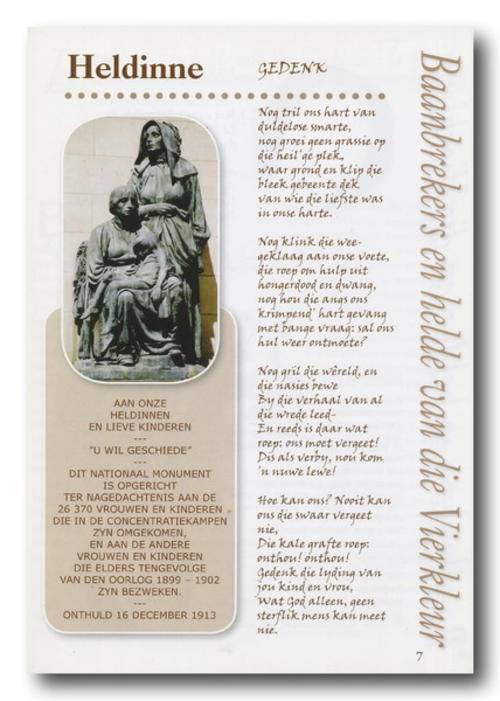 Heldinne
GEDENK
Nog tril ons hart van
duldelose smarte,
nog groei geen grassie op
die heil'ge plek,
waar grond en klip die
bleek gebeente dek
van wie die liefste was
in onse harte.
Nog klink die wee-
geklaag aan onse voete,
die roep om hulp uit
hongerdood en dwang,
nog hou die angs ons
krimpend' hart gevang
met bange vraag: sal ons
hul weer ontmoete?
Nog gril die wêreld, en
die nasies bewe
By die verhaal van al
die wrede leed-
En reeds is daar wat
roep: ons moet vergeet!
Dis als verby, nou kom
'n nuwe lewe!
Hoe kan ons? Nooit kan
ons die swaar vergeet
nie,
Die kale grafte roep:
onthou! onthou!
Gedenk die lyding van
jou kind en vrou,
Wat God alleen, geen
sterflik mens kan meet
nie.
AAN ONZE
HELDINNEN
EN LIEVE KINDEREN
---
"U WIL GESCHIEDE"
---
DIT NATIONAAL MONUMENT
IS OPGERICHT
TER NAGEDACHTENIS AAN DE
26 370 VROUWEN EN KINDEREN
DIE IN DE CONCENTRATIEKAMPEN
ZYN OMGEKOMEN,
EN AAN DE ANDERE
VROUWEN EN KINDEREN
DIE ELDERS TENGEVOLGE
VAN DEN OORLOG 1899 - 1902
ZYN BEZWEKEN.
---
ONTHULD 16 DECEMBER 1913
Baanbrekers en helde van die Vierkleur
7